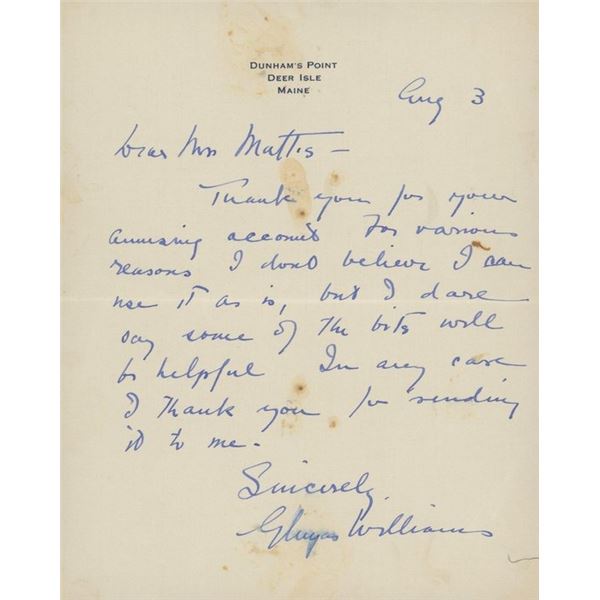 DUNHAM'S POINT
DEER ISLE
MAINE
Aug 3
Dear Mrs Mattis –
Thank you for your
amusing account For various
reasons I don't believe I can
use it as is, but I dare
say some of the bits will
be helpful In any case
I thank you for sending
it to me.
Sincerely,
Gluyas Williams